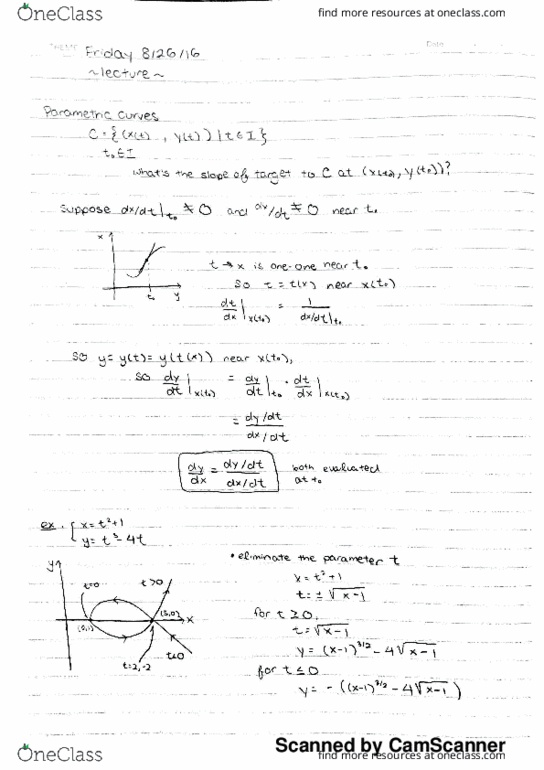 OneClass
find more resources at oneclass.com
Date
Friday 8/26/16
~lecture~
Parametric Curves
C = {(x(t), y(t)) | t ∈ I}
t₀ ∈ I
what's the slope of target to C at (x(t₀), y(t₀))?
Suppose dx/dt|t₀ ≠ 0 and dx/dt ≠ 0 near t₀
x
t₀ y
t → x is one-one near t₀
So t = t(x) near x(t₀)
dt/dx |x(t₀) = 1/(dx/dt|t₀)
So y = y(t) = y(t(x)) near x(t₀),
so dy/dt |x(t₀) = dy/dt |t₀ · dt/dx |x(t₀)
= (dy/dt)/(dx/dt)
dy/dx = (dy/dt)/(dx/dt) both evaluated at t₀
ex. { x = t²+1
y = t³-4t
• eliminate the parameter t
x = t²+1
t = ± √(x-1)
for t ≥ 0,
t = √(x-1)
y = (x-1)^3/2 - 4√(x-1)
for t ≤ 0
y = - ((x-1)^3/2 - 4√(x-1))
y
t=0
t>0
(5,0)
x
(0,1)
t<0
t=2,-2
Scanned by CamScanner
OneClass
find more resources at oneclass.com